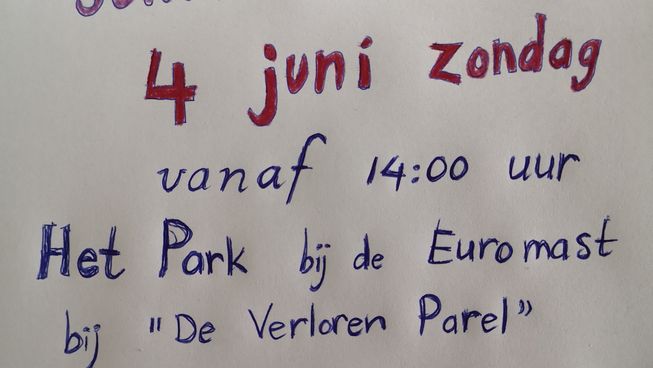 4 juni zondag
vanaf 14:00 uur
Het Park bij de Euromast
bij "De Verloren Parel"